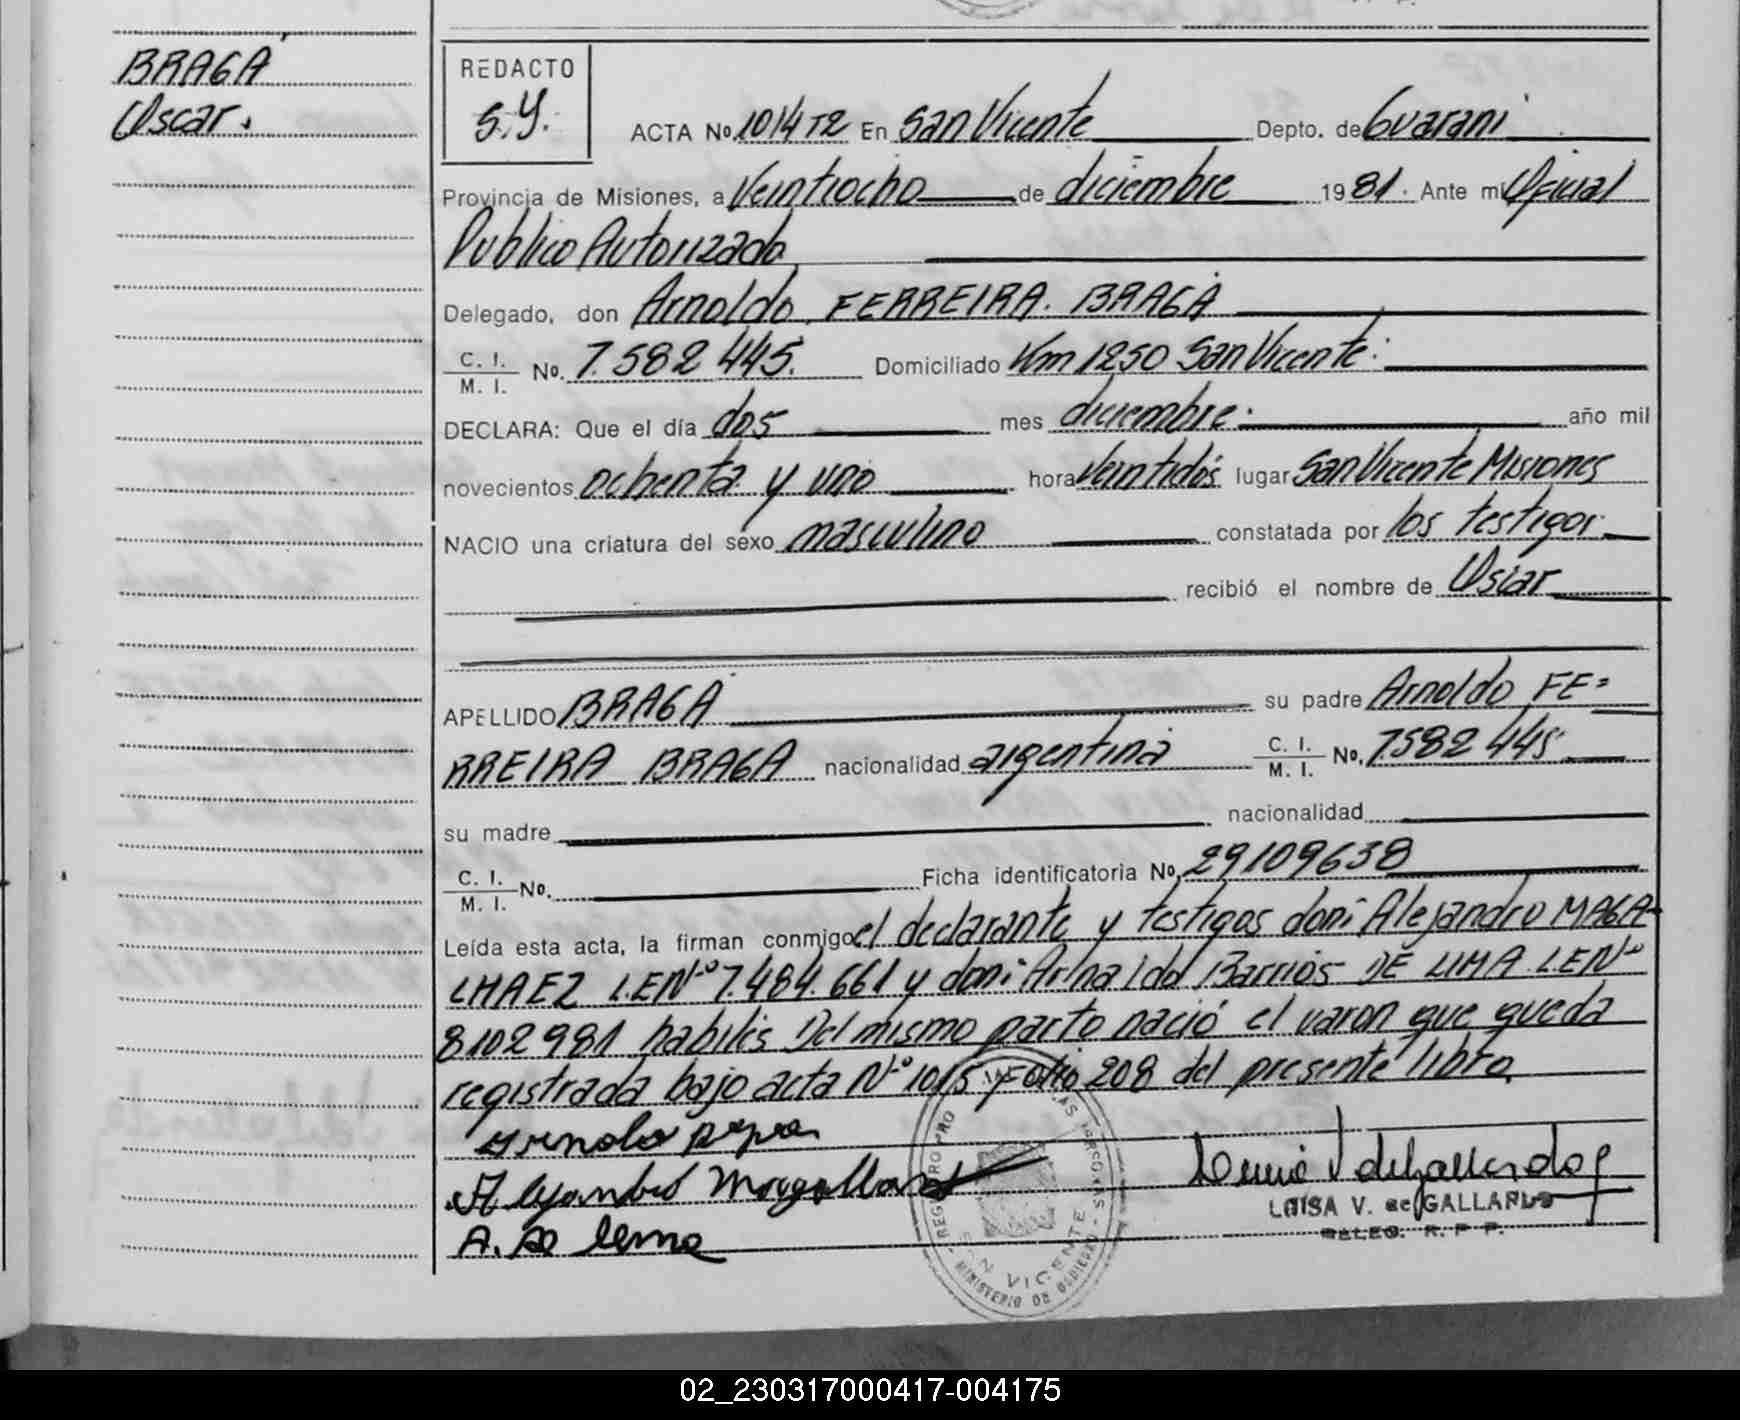 BRAGA
Oscar.
REDACTO
S.Y.
ACTA No. 1014 T2 En San Vicente Depto. de Guarani
Provincia de Misiones, a Veintiocho de diciembre 1981. Ante mi Oficial
Publico Autorizado
Delegado, don Arnoldo FERREIRA. BRAGA
C. I. / M. I. No. 7.582.445. Domiciliado Km 1250 San Vicente.
DECLARA: Que el día dos mes diciembre. año mil
novecientos ochenta y uno hora veintidós lugar San Vicente Misiones
NACIO una criatura del sexo masculino constatada por los testigos
recibió el nombre de Oscar
APELLIDO BRAGA su padre Arnoldo FE=
RREIRA BRAGA nacionalidad argentina C. I. / M. I. No. 7.582.445
su madre nacionalidad
C. I. / M. I. No. Ficha identificatoria No. 29109638
Leída esta acta, la firman conmigo el declarante y testigos don: Alejandro MAGA-
LHAEZ L.E Nº 7.484.661 y don: Arnaldo Barrios DE LIMA L.E Nº
8102981 habiles Del mismo parto nació el varon que queda
registrada bajo acta Nº 1015 y Folio 208 del presente libro.
Alejandro Magallaes
A. De Lema
LUISA V. de GALLARDO
DELEG. R. P. P.
SAN VICENTE
MINISTERIO DE GOBIERNO
02_230317000417-004175